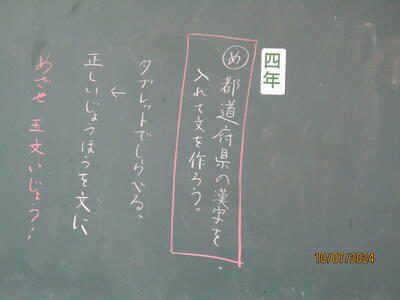 四年
め 都道府県の漢字を
入れて文を作ろう。
タブレットでしらべる、
↓
正しいじょうほうを文に
めざせ 五文いじょう!
10/07/2024